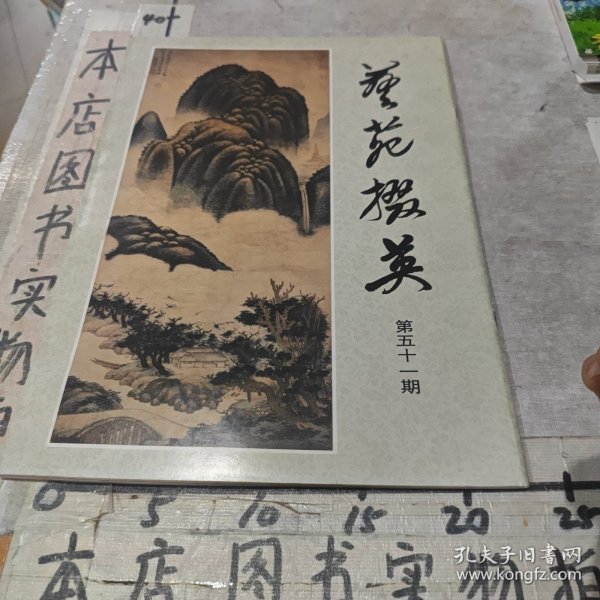 40
本店图书实物
藝苑掇英
第五十一期
0 5 10 15 20 25
本店图书实物拍
孔夫子旧书网
www.kongfz.com